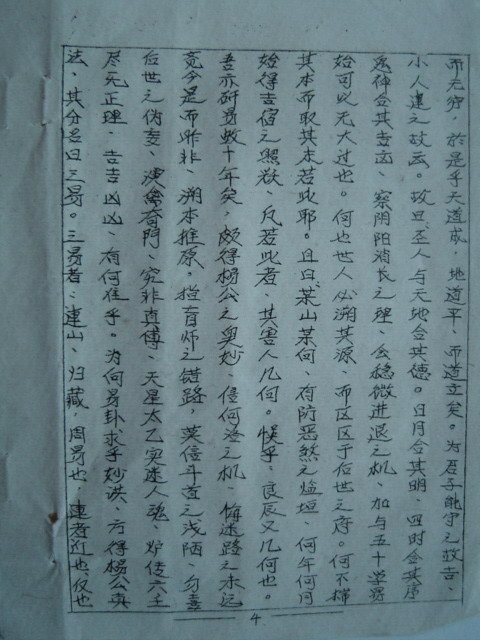 而无穷，於是乎天道成，地道平，而道立矣。为君子能守之故吉、
小人违之故凶。故曰：圣人与天地合其德。日月合其明、四时合其序
鬼神合其吉凶、察阴阳消长之理、公稳微进退之机、加与五十学易
始可以无大过也。何也世人必溯其源、而区区于后世之序。何不探
其本而取其末若此耶。且曰某山某向、有防恶煞之 何年何月
始得吉宿之照欤 凡若此者、其害人几何。悮乎、良辰又几何也。
吾亦研易数十年矣，颇得杨公之奥妙、侵河洛之机、悔迷路之未远
竟今是而昨非、溯本推原。指盲师之错路，莫信斗首之浅陋、勿
后世之伪妄、演禽奇门、究非真传、天星太乙实迷人魂 炉传六壬
尽无正理、吉吉凶凶、有何准乎。为何易卦求乎妙诀、方得杨公真
法、其分名曰三易。三易者：连山、归藏，周易也，连者近也仅也
4